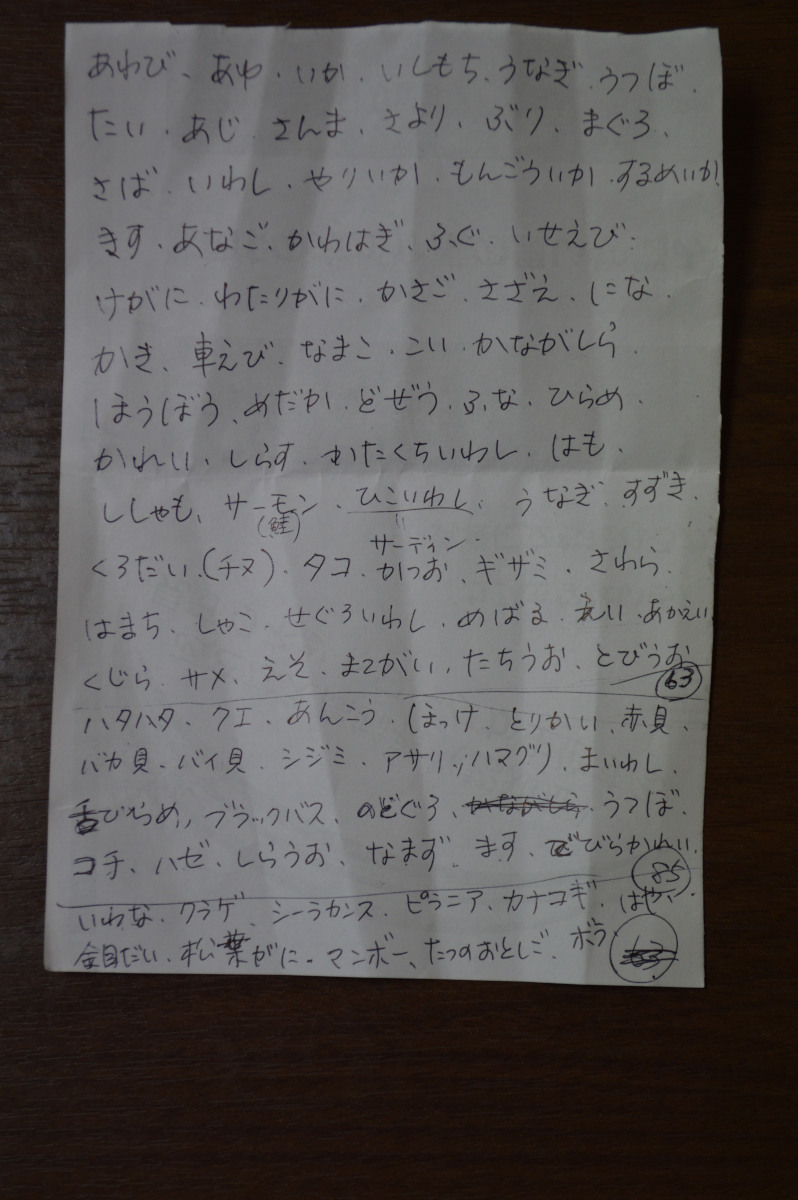 あわび、あゆ、いか、いしもち、うなぎ、うつぼ、
たい、あじ、さんま、さより、ぶり、まぐろ、
さば、いわし、やりいか、もんごういか、するめいか
ます、あなご、かわはぎ、ふぐ、いせえび、
けがに、わたりがに、かさご、さざえ、にな、
かき、車えび、なまこ、こい、かながしら、
ほうぼう、めだか、どぜう、ふな、ひらめ、
かれい、しらす、かたくちいわし、はも、
ししゃも、サーモン、ひこいわし、うなぎ、すずき、
(鮭)
サーディン
くろだい、(チヌ)、タコ、かつお、ギザミ、さわら、
はまち、しゃこ、せぐろいわし、めばる、えい、あかえい、
くじら、サメ、えそ、まてがい、たちうお、とびうお
63
ハタハタ、クエ、あんこう、ほっけ、とりかい、赤貝、
バカ貝、バイ貝、シジミ、アサリ、ハマグリ、まいわし、
舌びらめ、ブラックバス、のどぐろ、かながしら、うつぼ、
コチ、ハゼ、しらうお、なまず、ます、でびらかれい、
85
いわな、クラゲ、シーラカンス、ピラニア、カナコギ、はや、
金目だい、松葉がに、マンボー、たつのおとしご、ボラ、
63